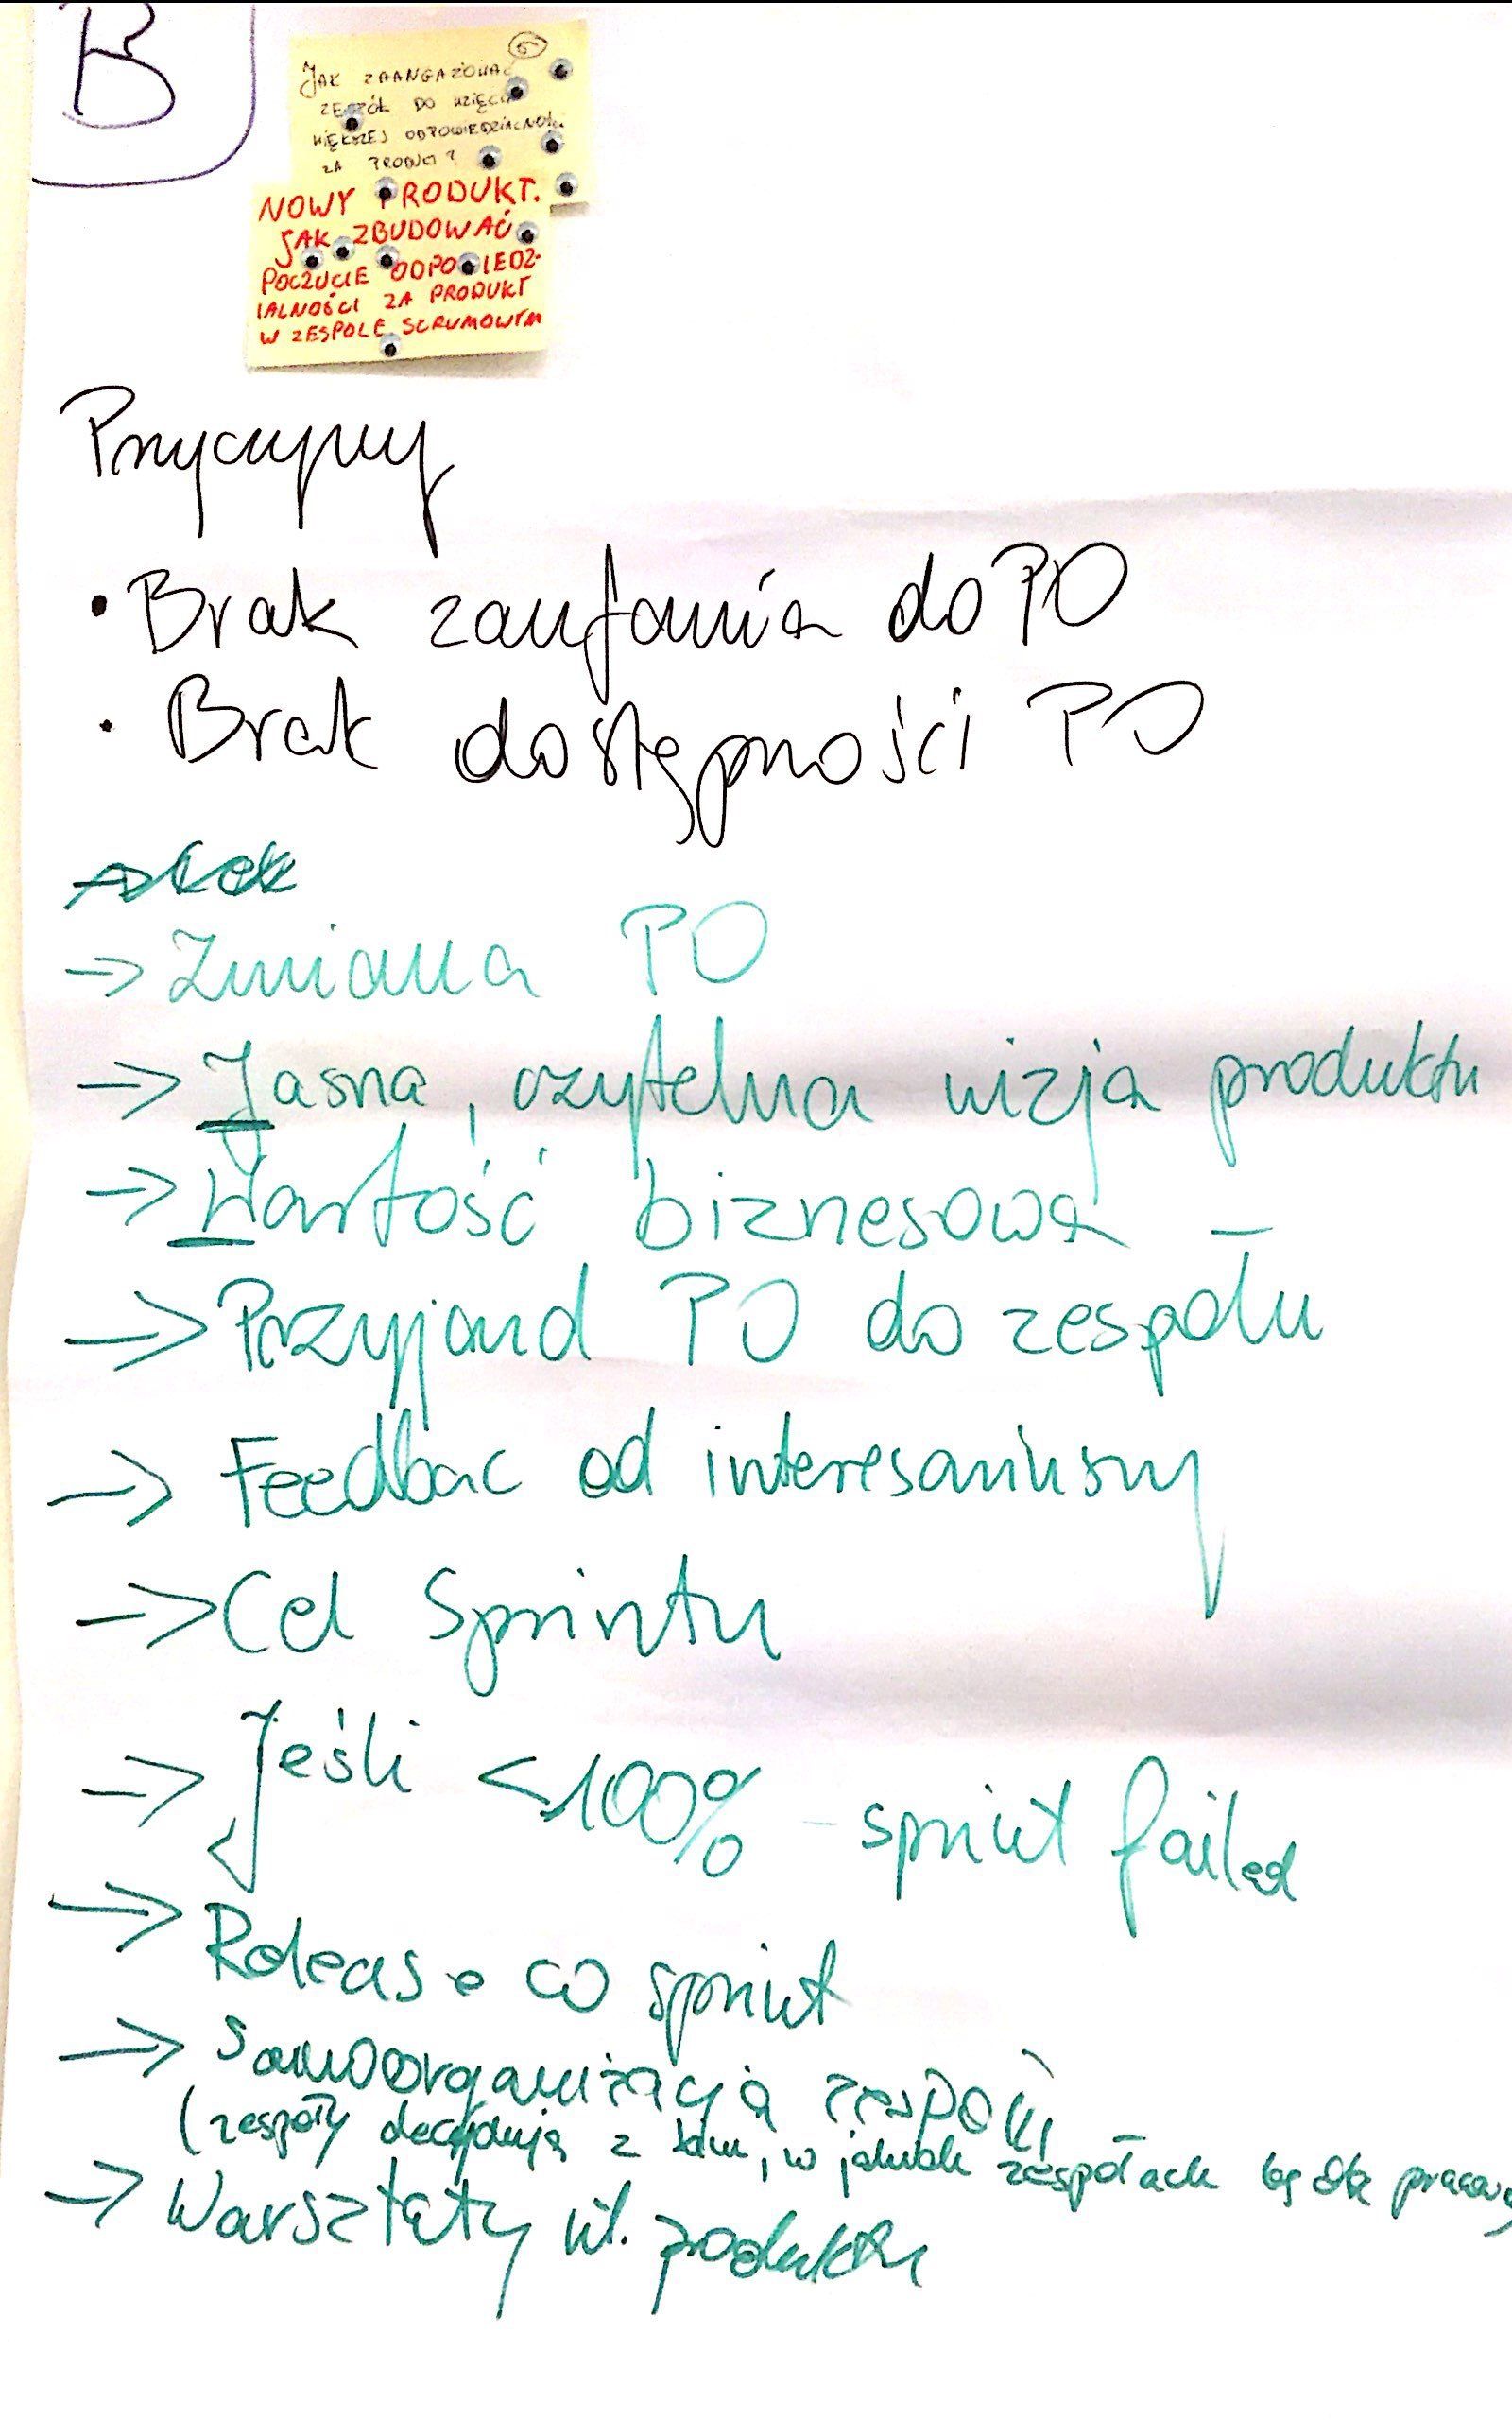 B
6
JAK ZAANGAŻOWAĆ
ZESPÓŁ DO WZIĘCIA
WIĘKSZEJ ODPOWIEDZIALNOŚCI
ZA PRODUKT?
NOWY PRODUKT.
JAK ZBUDOWAĆ
POCZUCIE ODPOWIEDZ-
IALNOŚCI ZA PRODUKT
W ZESPOLE SCRUMOWYM
Przyczyny
• Brak zaufania do PO
• Brak dostępności PO
→ Zmiana PO
→ Jasna, czytelna wizja produktu
→ Wartość biznesowa –
→ Przyjazd PO do zespołu
→ Feedbac od interesariuszy
→ Cel Sprintu
→ Jeśli <100% – sprint failed
→ Release co sprint
→ Samoorganizacja zespołu
(zespoły decydują z, w jakich zespołach będzie pracować
→ Warsztaty nt. produktu